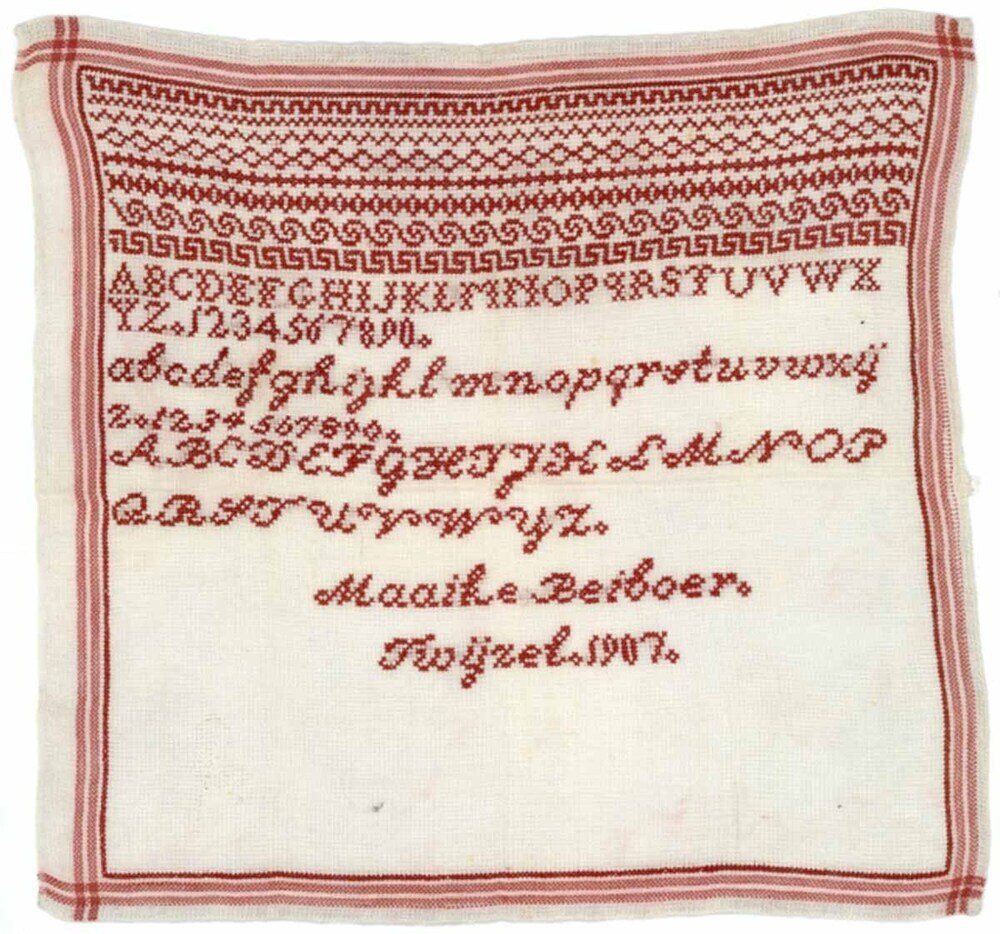 ABCDEFGHIJKLMNOPQRSTUVWX
YZ.1234567890.
abcdefghijklmnopqrstuvwxij
z.1234567890.
ABCDEFGHIJKLMNOP
QRSTUVWYZ.
Maaike Beiboer.
Kwijzel.1907.